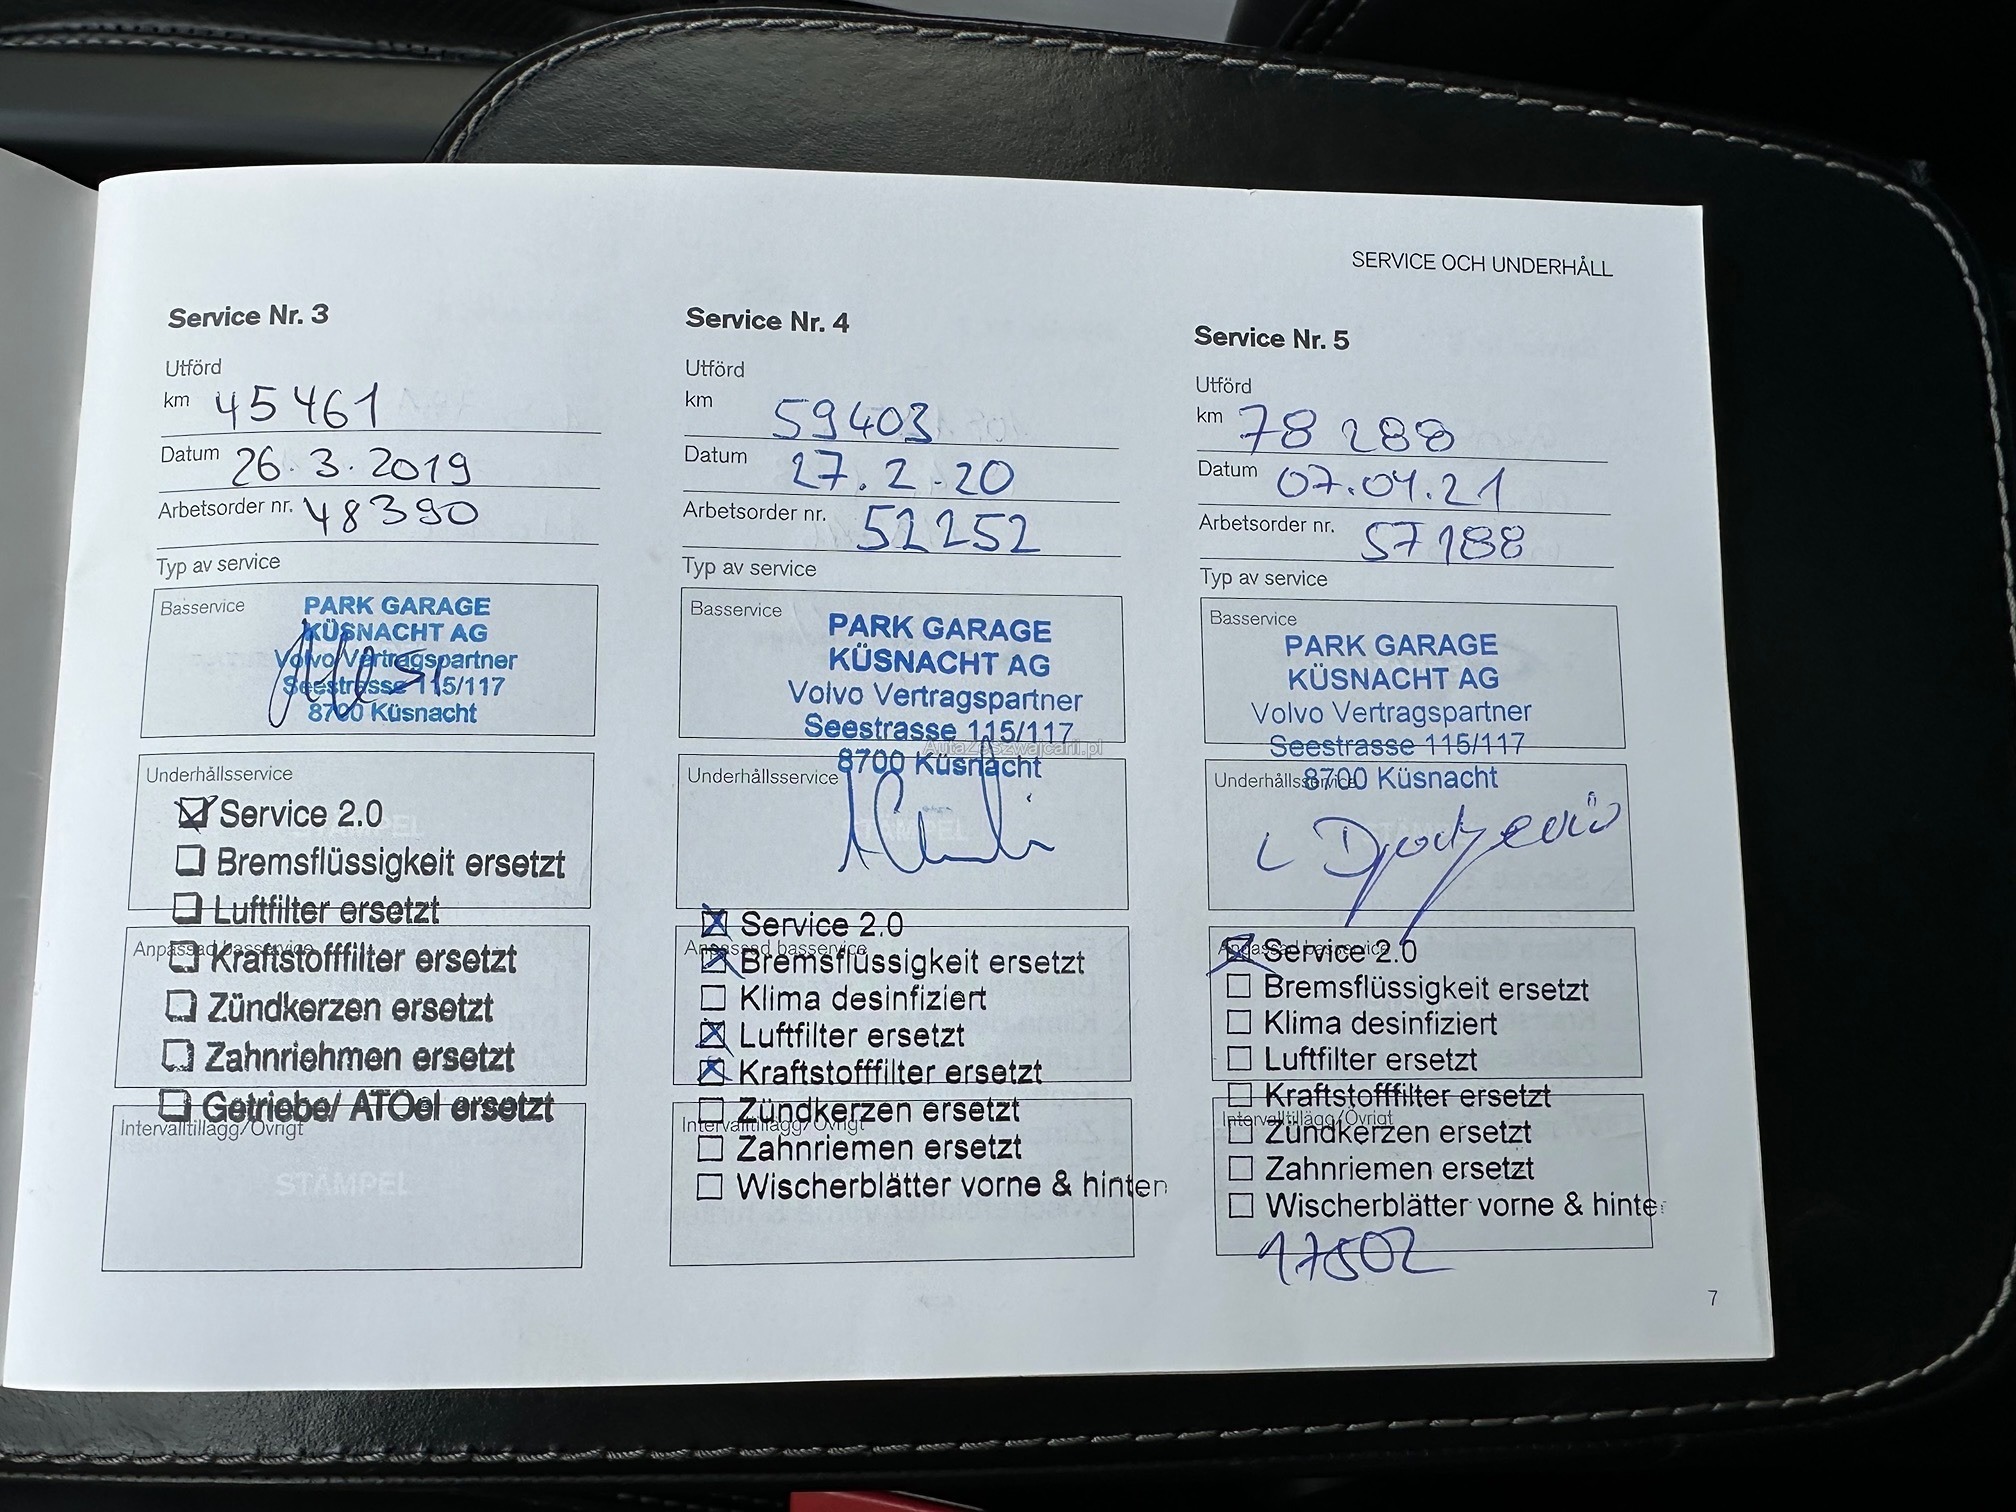 SERVICE OCH UNDERHÅLL
Service Nr. 3
Utförd
km 45461
Datum 26.3.2019
Arbetsorder nr. 48390
Typ av service
Basservice
PARK GARAGE
KÜSNACHT AG
Volvo Vertragspartner
Seestrasse 115/117
8700 Küsnacht
Underhållsservice
Service 2.0
Bremsflüssigkeit ersetzt
Luftfilter ersetzt
Anpassad basservice
Kraftstofffilter ersetzt
Zündkerzen ersetzt
Zahnriehmen ersetzt
Getriebe/ ATOel ersetzt
Intervalltillägg/Övrigt
STÄMPEL
Service Nr. 4
Utförd
km 59403
Datum 27.2.20
Arbetsorder nr. 52252
Typ av service
Basservice
PARK GARAGE
KÜSNACHT AG
Volvo Vertragspartner
Seestrasse 115/117
AutaZeSzwajcarii.pl
8700 Küsnacht
Underhållsservice
STÄMPEL
Service 2.0
Anpassad basservice
Bremsflüssigkeit ersetzt
Klima desinfiziert
Luftfilter ersetzt
Kraftstofffilter ersetzt
Zündkerzen ersetzt
Intervalltillägg/Övrigt
Zahnriemen ersetzt
Wischerblätter vorne & hinten
Service Nr. 5
Utförd
km 78 288
Datum 07.04.21
Arbetsorder nr. 57188
Typ av service
Basservice
PARK GARAGE
KÜSNACHT AG
Volvo Vertragspartner
Seestrasse 115/117
8700 Küsnacht
Underhållsservice
Anpassad basservice
Service 2.0
Bremsflüssigkeit ersetzt
Klima desinfiziert
Luftfilter ersetzt
Kraftstofffilter ersetzt
Intervalltillägg/Övrigt
Zündkerzen ersetzt
Zahnriemen ersetzt
Wischerblätter vorne & hinte
17502
7